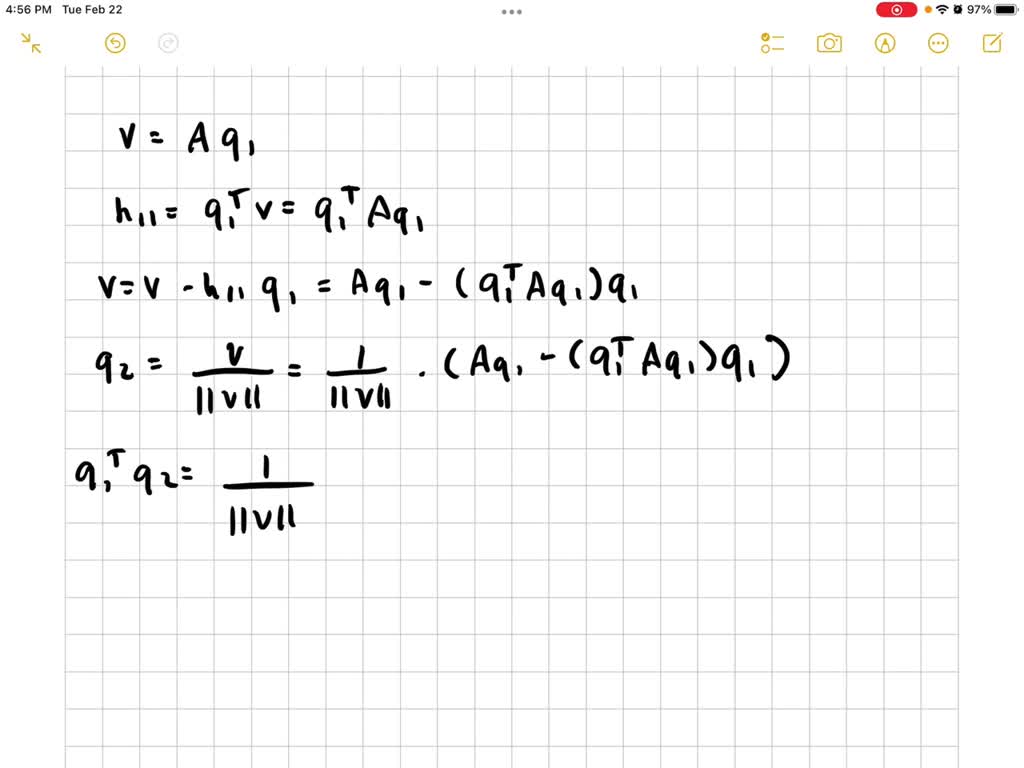 4:56 PM Tue Feb 22
97%
v = A q₁
h₁₁ = q₁ᵀ v = q₁ᵀ A q₁
v = v - h₁₁ q₁ = A q₁ - (q₁ᵀ A q₁) q₁
q₂ = v / ||v|| = 1 / ||v|| · (A q₁ - (q₁ᵀ A q₁) q₁)
q₁ᵀ q₂ = 1 / ||v||